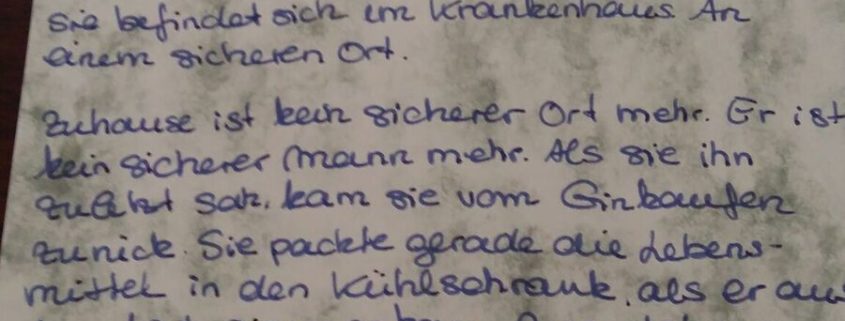 sie befindet sich im Krankenhaus. An
einem sicheren Ort.
Zuhause ist kein sicherer Ort mehr. Er ist
kein sicherer Mann mehr. Als sie ihn
zuletzt sah, kam sie vom Einkaufen
zurück. Sie packte gerade die Lebens-
mittel in den Kühlschrank, als er